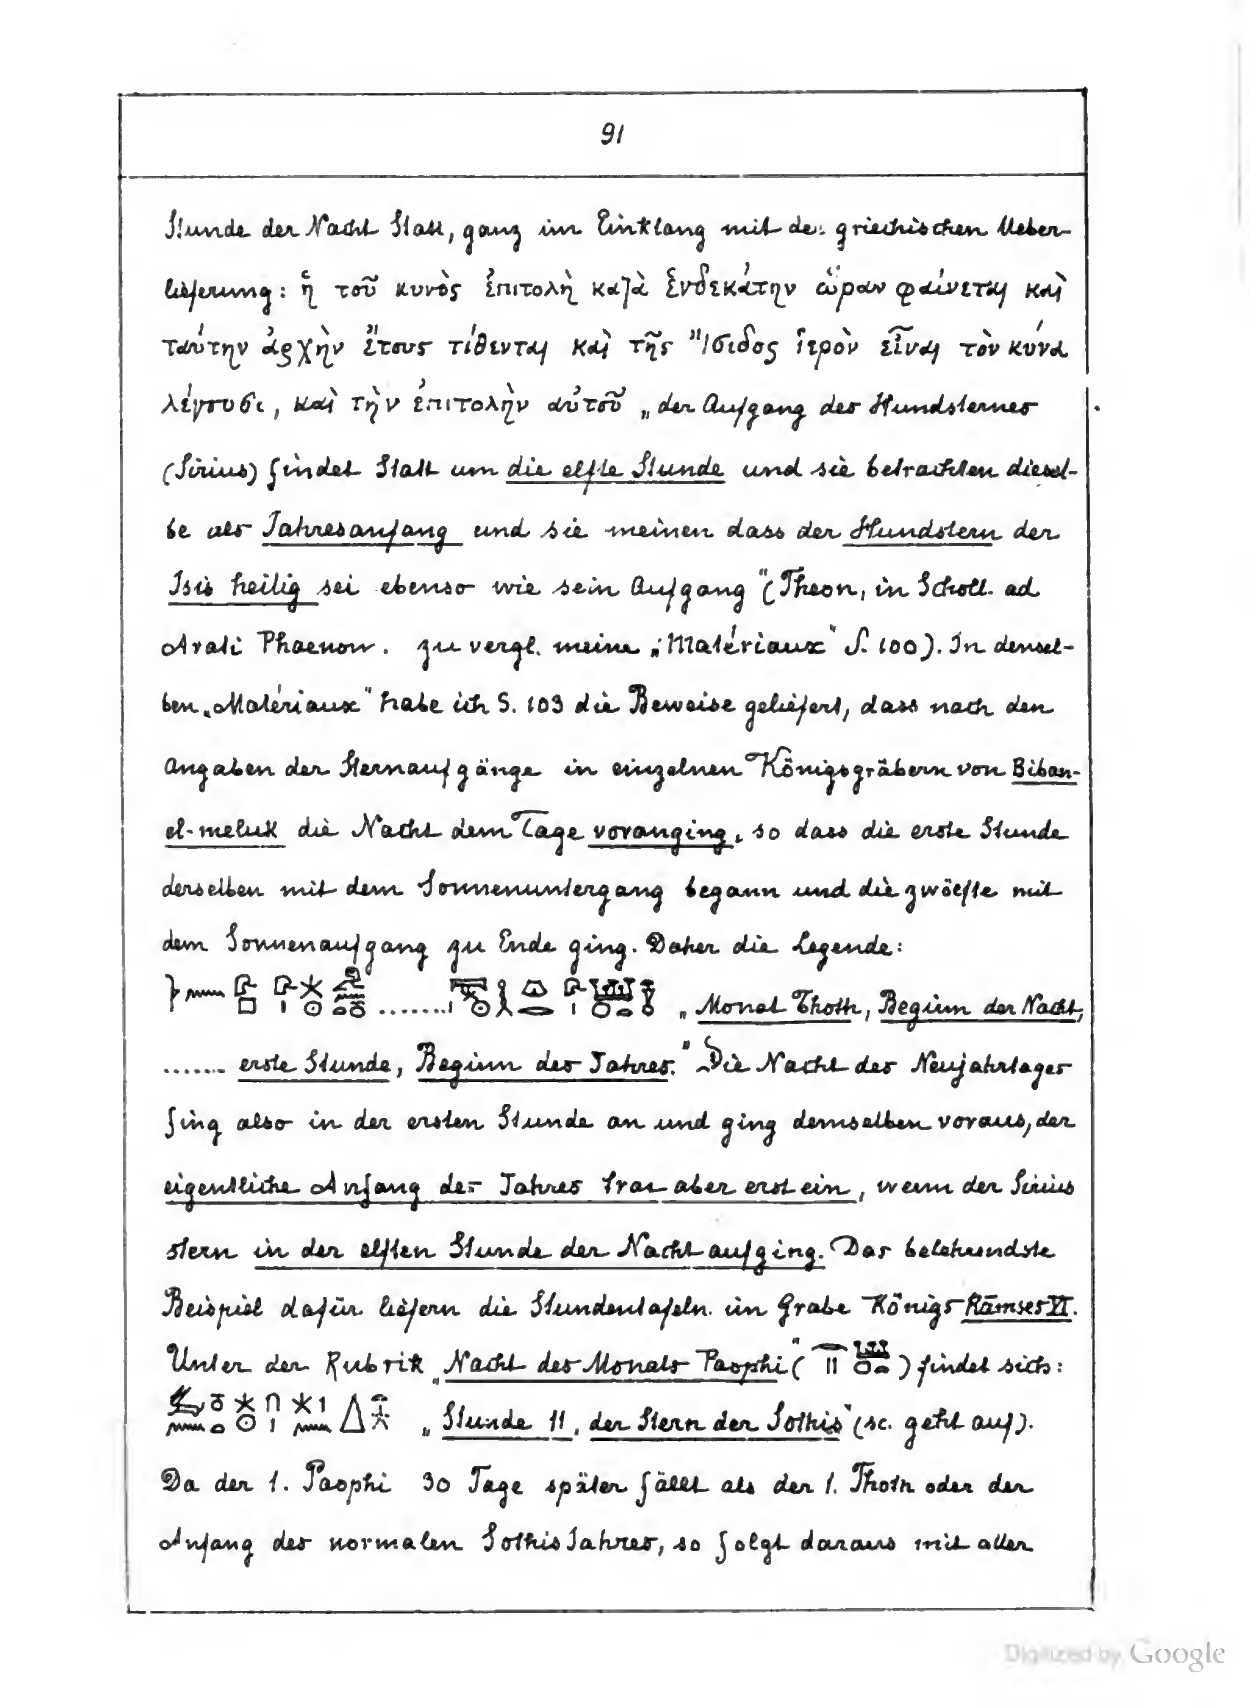 91
Stunde der Nacht Statt, ganz im Einklang mit der griechischen Ueber-
lieferung: ἡ τοῦ κυνὸς ἐπιτολὴ κατὰ ἑνδεκάτην ὥραν φαίνεται καὶ
ταύτην ἀρχὴν ἔτους τίθενται καὶ τῆς Ἴσιδος ἱερὸν εἶναι τὸν κύνα
λέγουσι, καὶ τὴν ἐπιτολὴν αὐτοῦ „der Aufgang des Hundsternes
(Sirius) findet Statt um die elfte Stunde und sie betrachten diesel-
be als Jahresanfang und sie meinen dass der Hundstern der
Isis heilig sei ebenso wie sein Aufgang" (Theon, in Scholl. ad
Arati Phaenom. zu vergl. meine „Matériaux" S. 100). In densel-
ben „Matériaux" habe ich S. 103 die Beweise geliefert, dass nach den
Angaben der Sternaufgänge in einzelnen Königsgräbern von Biban-
el-meluk die Nacht dem Tage voranging, so dass die erste Stunde
derselben mit dem Sonnenuntergang begann und die zwölfte mit
dem Sonnenaufgang zu Ende ging. Daher die Legende:
........ „Monat Thoth, Beginn der Nacht,
....... erste Stunde, Beginn des Jahres." Die Nacht des Neujahrtages
fing also in der ersten Stunde an und ging demselben voraus, der
eigentliche Anfang des Jahres trat aber erst ein, wenn der Sirius
stern in der elften Stunde der Nacht aufging. Das belehrendste
Beispiel dafür liefern die Stundentafeln im Grabe Königs Rāmses VI.
Unter der Rubrik „Nacht des Monats Paophi" ( ) findet sich:
„Stunde 11, der Stern der Sothis" (sc. geht auf).
Da der 1. Paophi 30 Tage später fällt als der 1. Thoth oder der
Anfang des normalen Sothis Jahres, so folgt daraus mit aller
Digitized by Google